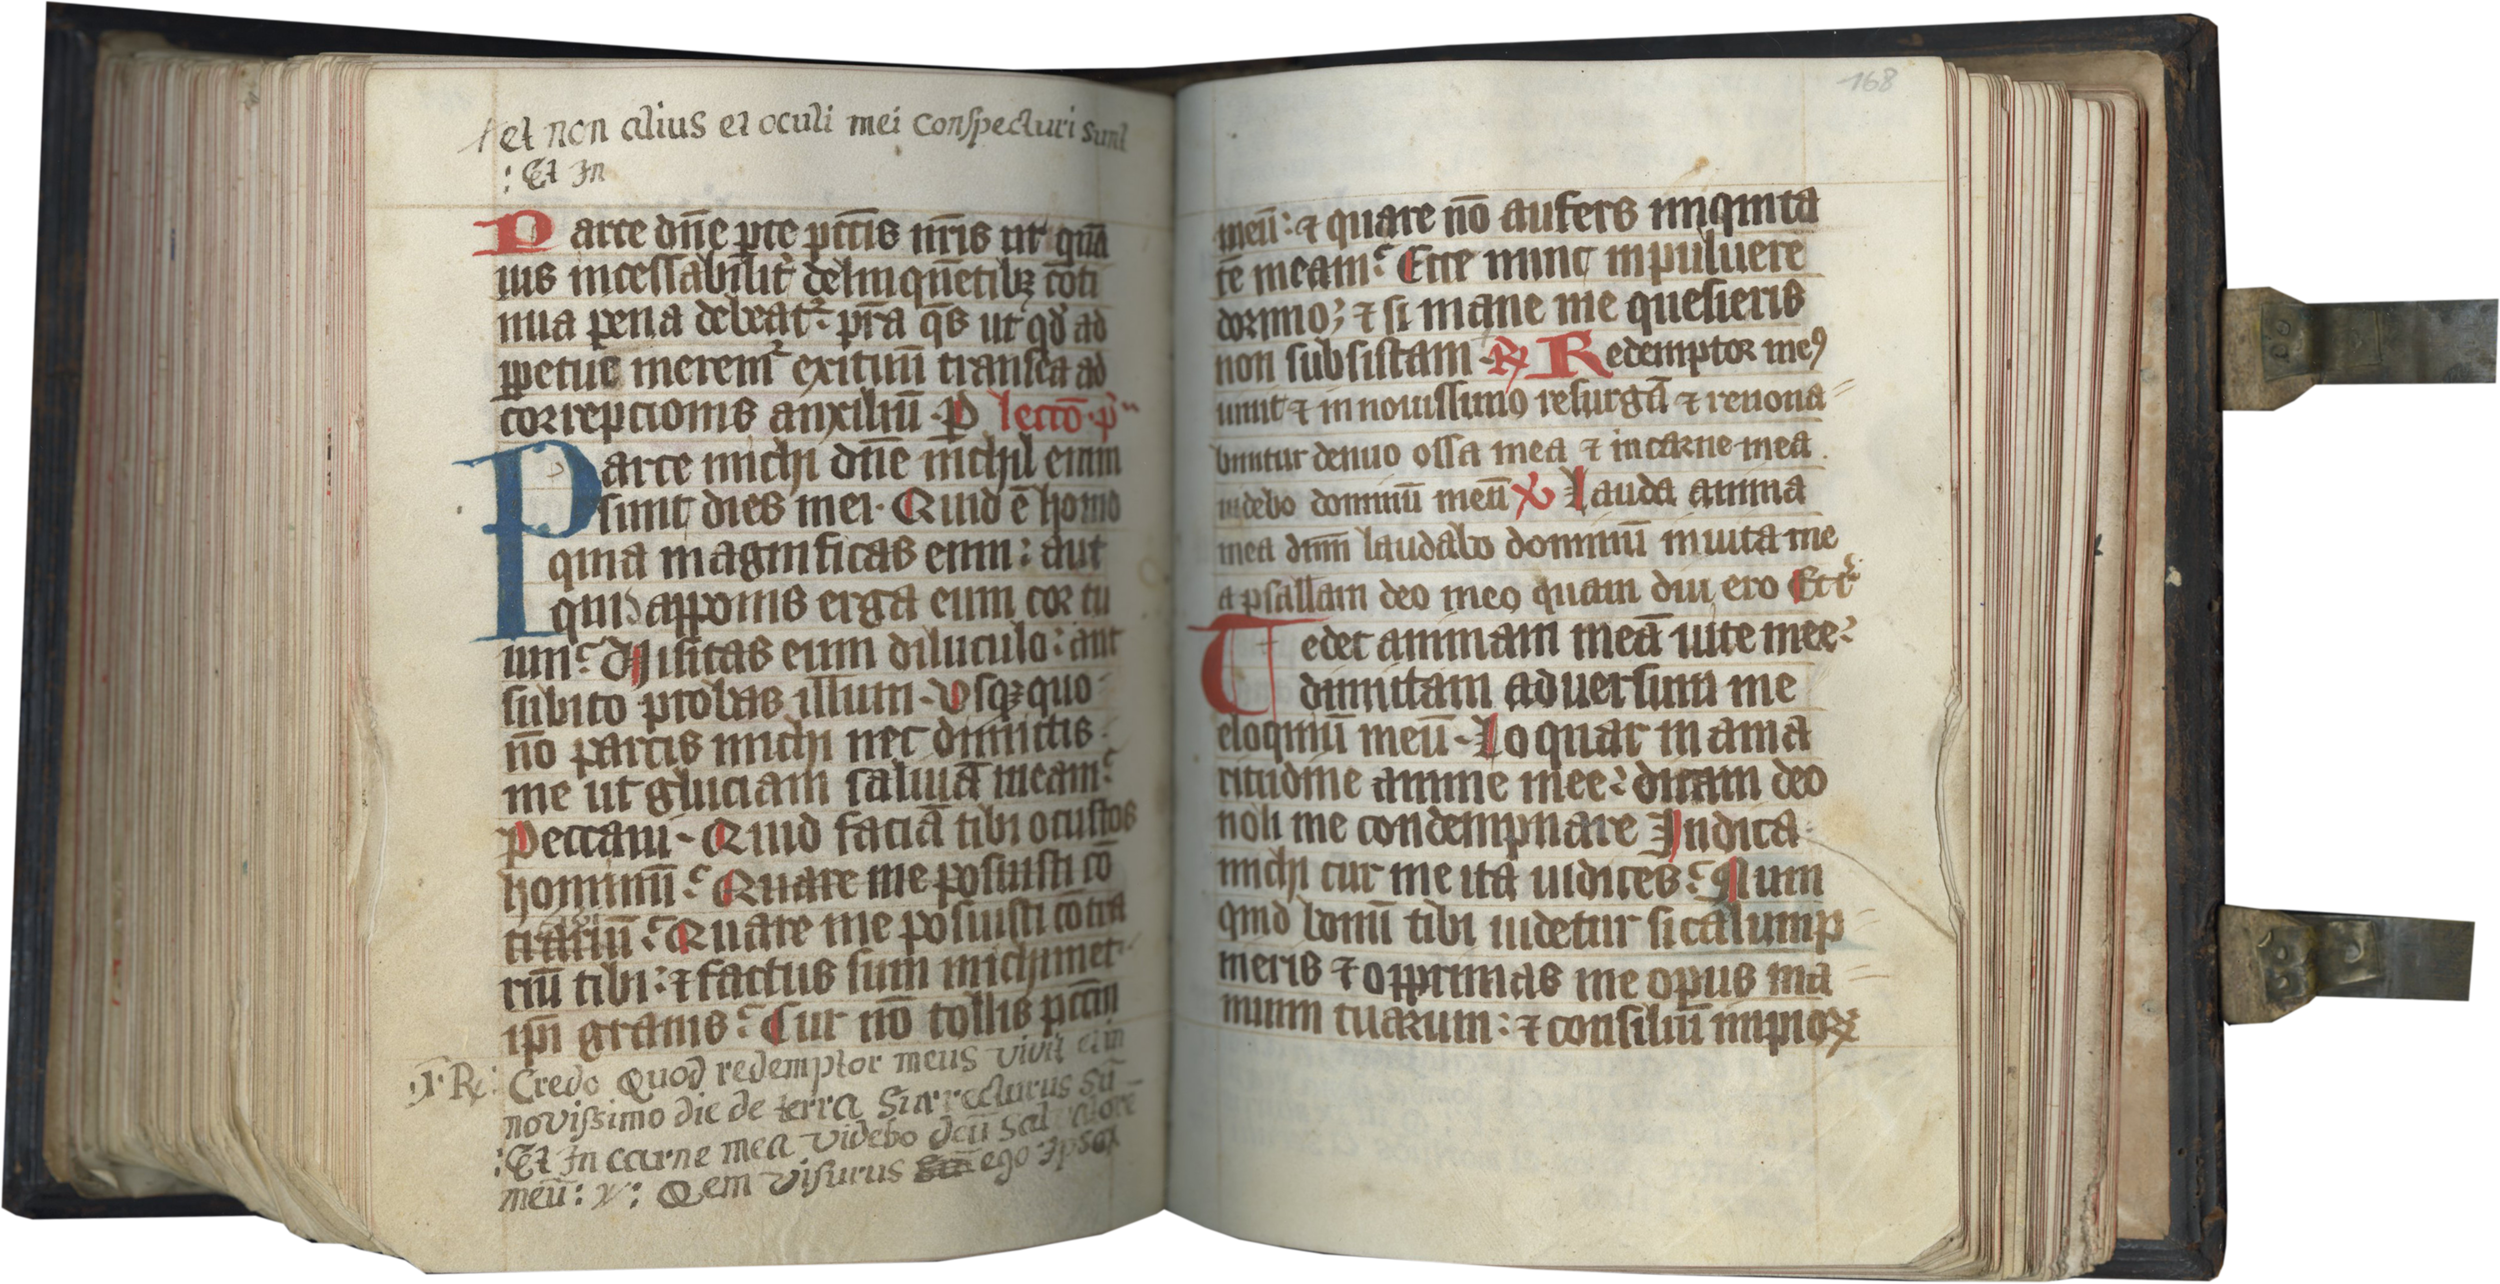 et non alius et oculi mei conspecturi sunt
: Et In
Parce dn̄e pce pcc̄is nr̄is ut quā
uis incessabilit᷑ delinquētibꝫ cōti
nua pena debeat᷑: pr̄a q̄s ut qd̓ ad
ꝑpetue merem᷑ exitiuū transea ad
correpcionis auxiliū · P lectō · pͥ
Parce michi dn̄e nichil enim
sunt dies mei · Quid ē homo
quia magnificas eum : aut
quid apponis erga eum cor tu
um : Uisitas eum diluculo : aut
subito probas illum · Usqꝫ quo
nō parcis michi nec dimittis
me ut gluciam saliuā meam :
Peccaui · Quid faciā tibi o custos
hominū : Quare me posuisti cō
trariū : Quare me posuisti cōtra
riū tibi : ⁊ factus sum michimet
ipī grauis : Cur nō tollis pccm̄
.I. ℟: Credo Quod redemptor meus vivit et in
novissimo die de terra Surrecturus Sū
: Et In carne mea videbo deū salvatore
meū : ℣ : Qem visurus Sū ego ipse
168
meū : ⁊ quare nō aufers iniquita
tē meam : Ecce nunc in puluere
dormio; ⁊ si mane me quesieris
non subsistam · ℟ Redemptor meꝰ
uiuit ⁊ in nouissimo resurgā ⁊ renoua
buntur denuo ossa mea ⁊ in carne mea
uidebo dominū meū ℣ Lauda anima
mea dnm̄ laudabo dominū in uita me
a psallam deo meo quam diu ero Et t͛
Tedet animam meā uite mee :
dimittam aduersum me
eloquiū meū · Loquar in ama
ritudine anime mee : dicam deo
noli me condempnare Indica
michi cur me ita iudices : Num
quid bonū tibi uidetur si calump
nieris ⁊ opprimas me opus ma
nuum tuarum : ⁊ consiliū impioꝝ